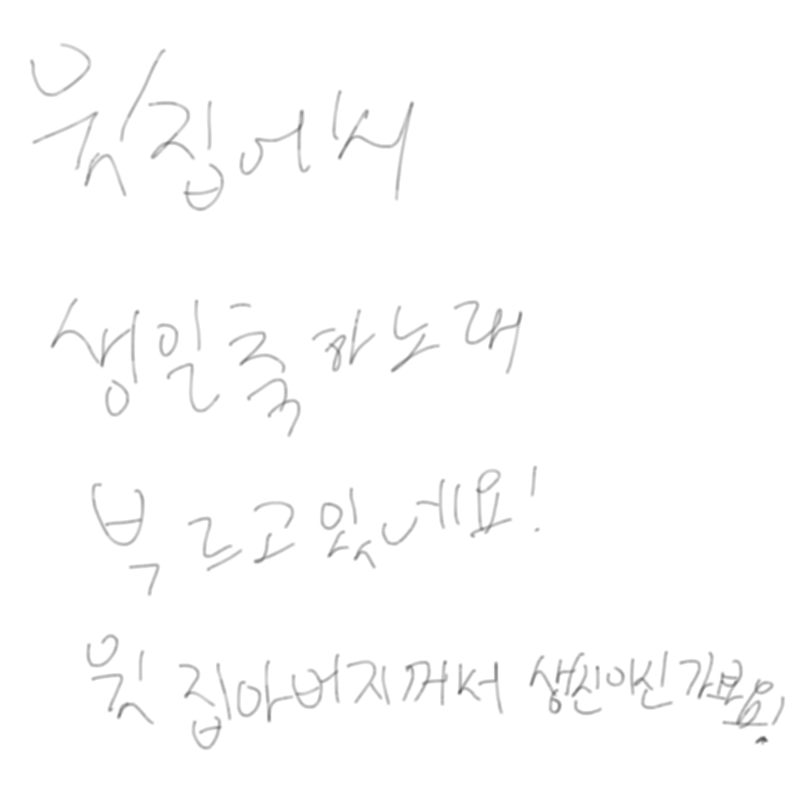 윗집에서
생일축하노래
부르고있네요!
윗집아버지꺼서 생신이신가보요!